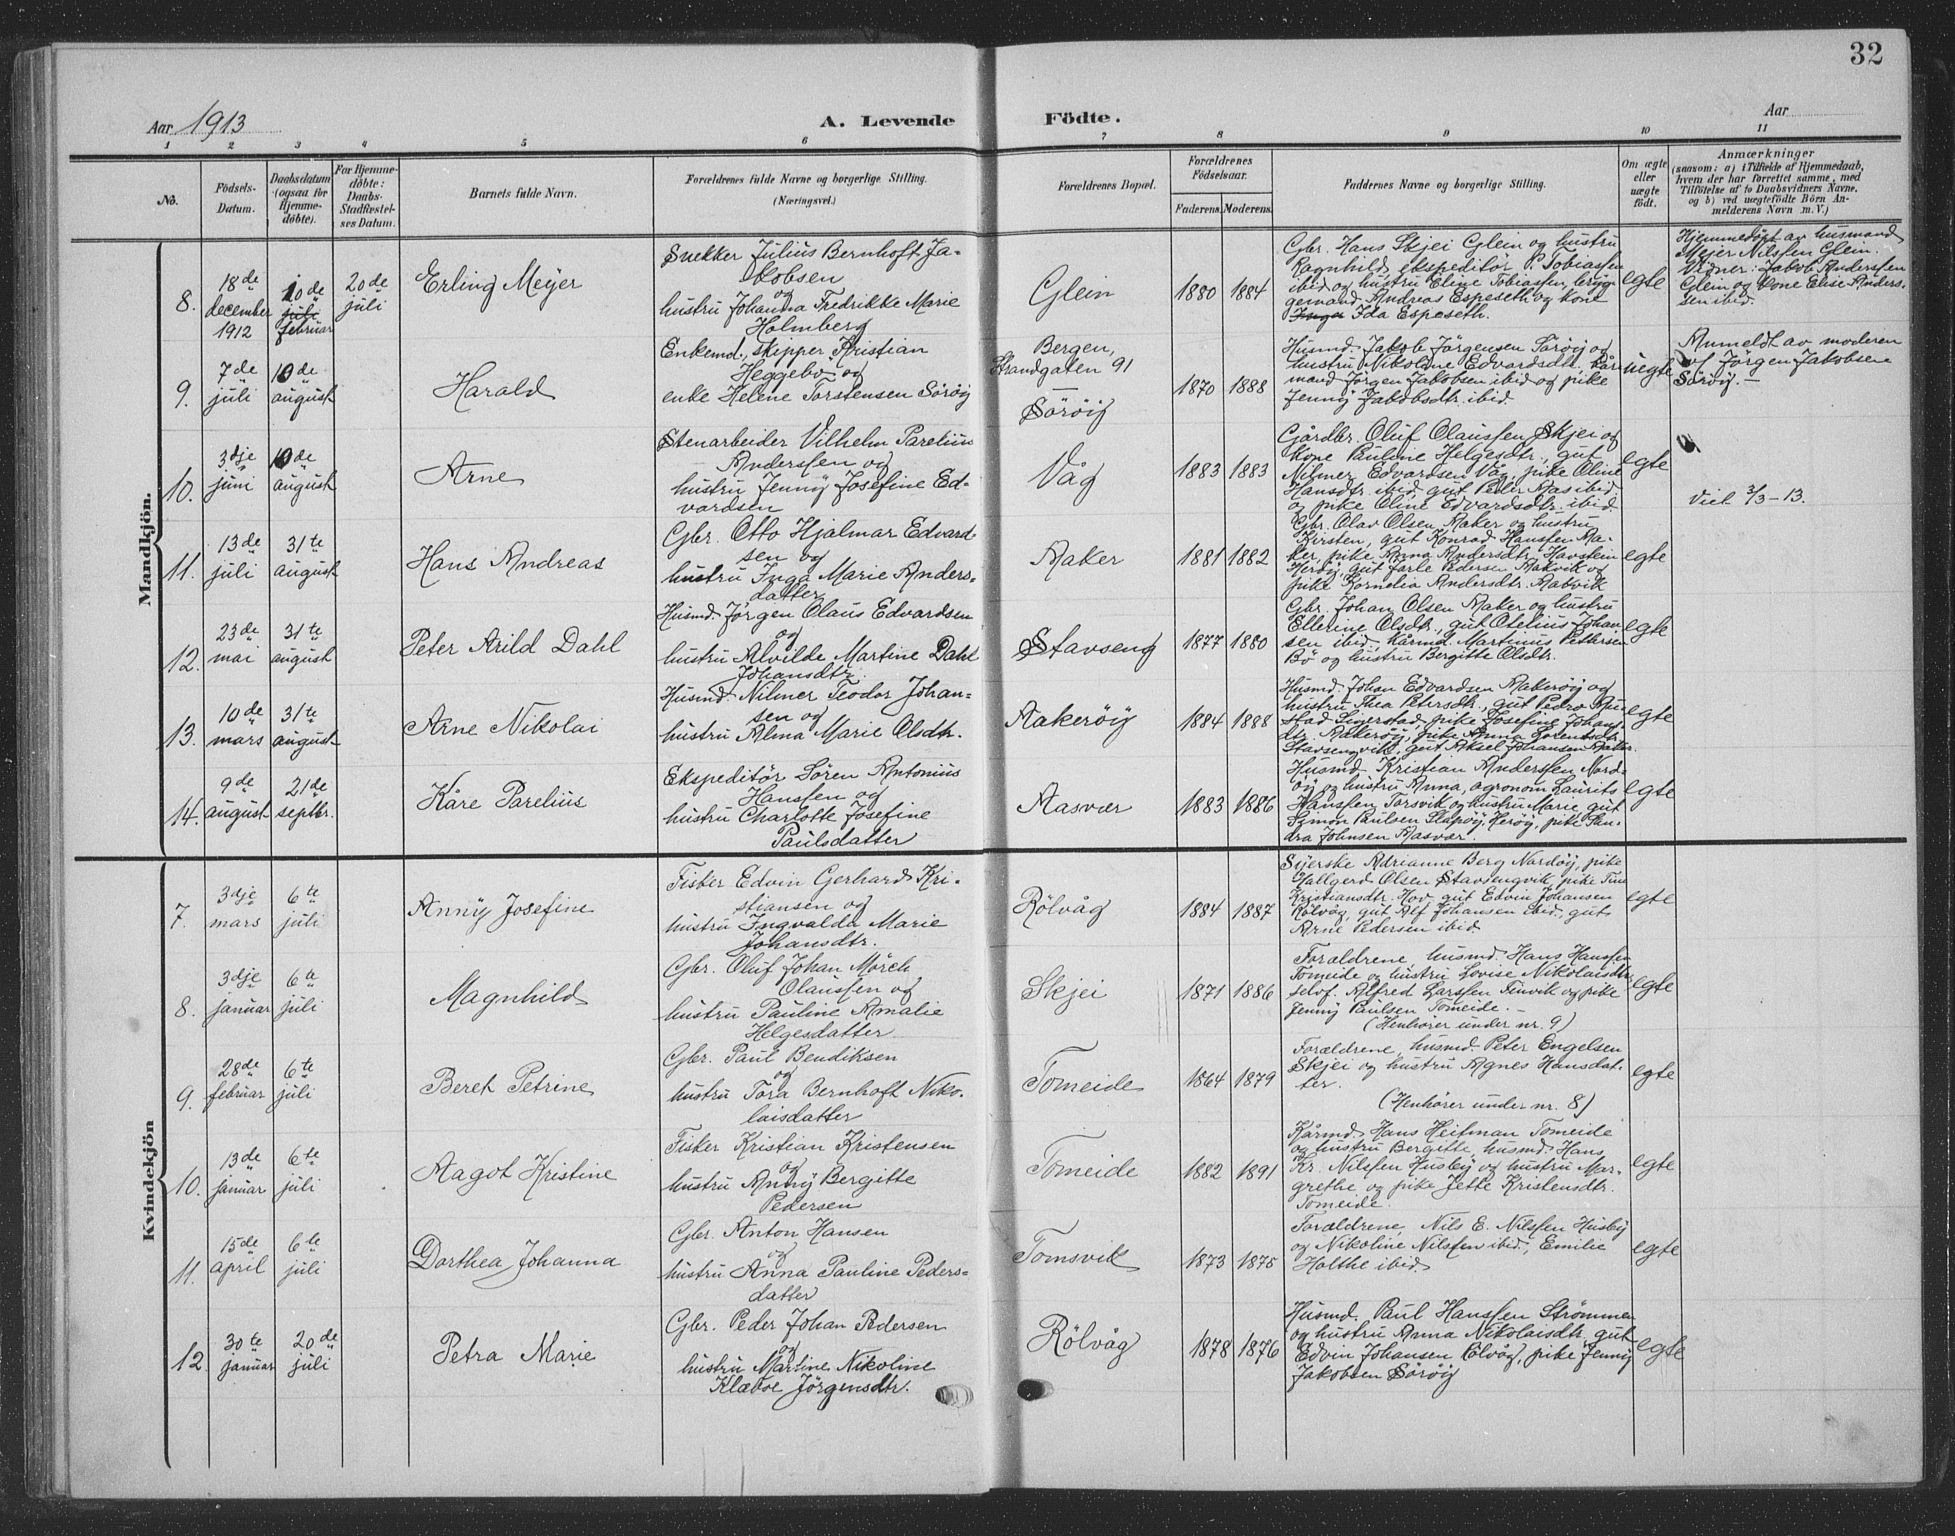 32
Aar 1913
A. Levende
Födte.
Aar
1 2 3 4 5 6 7 8 9 10 11
No.
Födsels-
Datum.
Daabsdatum
(ogsaa for
Hjemme-
döbte).
For Hjemme-
döbte:
Daabs-
Stadfæstel-
ses Datum.
Barnets fulde Navn.
Forældrenes fulde Navne og borgerlige Stilling.
(Næringsvei.)
Forældrenes Bopæl.
Forældrenes
Födselsaar.
Faderens. Moderens.
Faddernes Navne og borgerlige Stilling.
Om ægte
eller
uægte
födt.
Anmærkninger
(saasom: a) i Tilfælde af Hjemmedaab,
hvem der har forrettet samme, med
Tilföielse af to Daabsvidners Navne,
og b) ved uægtefödte Börn An-
melderens Navn m. V.)
Mandkjön.
8.
18de
december
1912
10de
juli
februar
20de
juli
Erling Meyer
Snekker Julius Bernhoft Ja-
kobsen
og
hustru Johanna Fredrikke Marie
Holmberg
Glein
1880 1884
Gbr. Hans Skjei Glein og hustru
Ragnhild, ekspeditör P. Tobiassen
ibid og hustru Elene Tobiassen, brygge-
gemand Andreas Espeseth og kone
Inga Ida Espeseth.
egte
Hjemmedøpt av husmand
Mejer Nilsen Glein.
Vidner: Jakob Anderssen
Glein og kone Elise Anders-
sen ibid.
9.
7de
juli
10de
august
Harald
Enkemd., skipper Kristian
Heggebø og
enke Helene Torstensen Söröy
Bergen,
Strandgaten 91
—
Söröy
1870 1888
Husmd. Jakob Jörgensen Söröy og
hustru Nikoline Edvardsdtr. kår-
mand Jörgen Jakobsen ibid og pike
Jenny Jakobsdtr. ibid.
uegte
Anmeldt av moderen
v. Jörgen Jakobsen
Sörøy. —
10.
3dje
juni
10de
august
Arne
Stenarbeider Vilhelm Parelius
Anderssen og
hustru Jenny Josefine Ed-
vardsen
Våg
1883 1883
Gårdbr. Oluf Olaussen Skjei og
kone Pauline Helgesdtr., gut
Nilmer Edvardsen Våg, pike Oline
Hansdtr. ibid, gut Peder Aas ibid
og pike Oline Edvardsdtr. ibid.
egte
Viet 3/3 – 13.
11.
13de
juli
31te
august
Hans Andreas
Gbr. Otto Hjalmar Edvard-
sen og
hustru Inga Marie Anders-
datter
Aaker
1881 1882
Gbr. Olav Olsen Aaker og hustru
Kirsten, gut Konrad Hanssen Aa-
ker, pike Anna Andersdtr. Havstein
Heröy, gut Jarle Pedersen Aakvik og
pike Kornelia Andersdtr. Aakvik
egte
12.
23de
mai
31te
august
Peter Arild Dahl
Husmd. Jørgen Olaus Edvardsen
og
hustru Alvilde Martine Dahl
Johansdtr.
Stavseng
1877 1880
Gbr. Johan Olsen Aaker og hustru
Ellerine Olsdtr., gut Otelius Johan-
sen ibid, kårmd. Martinus Pettersen
Bö og hustru Bergitte Olsdtr.
egte
13.
10de
mars
31te
august
Arne Nikolai
Husmd. Nilmer Teodor Johan-
sen og
hustru Alma Marie Olsdtr.
Aakeröy
1884 1888
Husmd. Johan Edvardsen Aakeröy og
hustru Thea Petersdtr., gut Pedro
pike Josefine Johans-
dtr. Aakeröy, pike Anna Lorentsdtr.
Stavsengvik, gut Aksel Johansen Aaker.
egte
14.
9de
august
21de
septbr.
Kåre Parelius
Ekspeditör Sören Antonius
Hanssen og
hustru Charlotte Josefine
Paulsdatter
Aasvær
1883 1886
Husmd. Kristian Anderssen Nord-
öy og hustru Anna, agronom Laurits
Hanssen Torsvik og hustru Marie, gut
Simon Paulsen Slapöy, Heröy, pike San-
dra Johnsen Aasvær.
egte
Kvindekjön
7.
3dje
mars
6te
juli
Anny Josefine
Fisker Edvin Gerhard Kri-
stiansen og
hustru Ingvalda Marie
Johansdtr.
Rölvåg
1884 1887
Syerske Adrianne Berg Nordöy, pike
Hallgerd Olsen Stavsengvik, pike Tine
Kristiansdtr. Hov, gut Edvin Johansen
Rölvåg, gut Alf Johansen ibid, gut
Arne Pedersen ibid.
egte
8.
3dje
januar
6te
juli
Magnhild
Gbr. Oluf Johan Mörch
Olaussen og
hustru Pauline Amalie
Helgesdatter
Skjei
1871 1886
Forældrene, husmd. Hans Hanssen
Tomeide og hustru Lovise Nikolaisdtr.
Alfred Larssen Finvik og pike
Jenny Paulsen Tomeide. —
(Henhører under nr. 9)
egte
9.
28de
februar
6te
juli
Beret Petrine
Gbr. Paul Bendiksen
og
hustru Tora Bernhoft Niko-
laisdatter
Tomeide
1864 1879
Forældrene, husmd. Peter Engelsen
Skjei og hustru Agnes Hansdat-
ter.
(Henhører under nr. 8)
egte
10.
13de
januar
6te
juli
Aagot Kristine
Fisker Kristian Kristensen
og
hustru Anny Bergitte
Pedersen
Tomeide
1882 1891
Kårmd. Hans Heitman Tomeide
og hustru Bergitte, husmd. Hans
Kr. Nilssen Husby og hustru Mar-
grethe og pike Jette Kristensdtr.
Tomeide.
egte
11.
15de
april
6te
juli
Dorthea Johanna
Gbr. Anton Hansen
og
hustru Anna Pauline Peders-
datter
Tomsvik
1873 1875
Forældrene, Nils E. Nilssen Husby
og Nikoline Nilssen ibid, Emilie
Holthe ibid.
egte
12.
30te
januar
20de
juli
Petra Marie
Gbr. Peder Johan Pedersen
og
hustru Martine Nikoline
Klæboe Jörgensdtr.
Rölvåg
1878 1876
Husmd. Paul Hanssen Strömmen
og hustru Anna Nikolaisdtr. gut
Edvin Johansen Rölvåg, pike Jenny
Jakobsen Söröy
egte